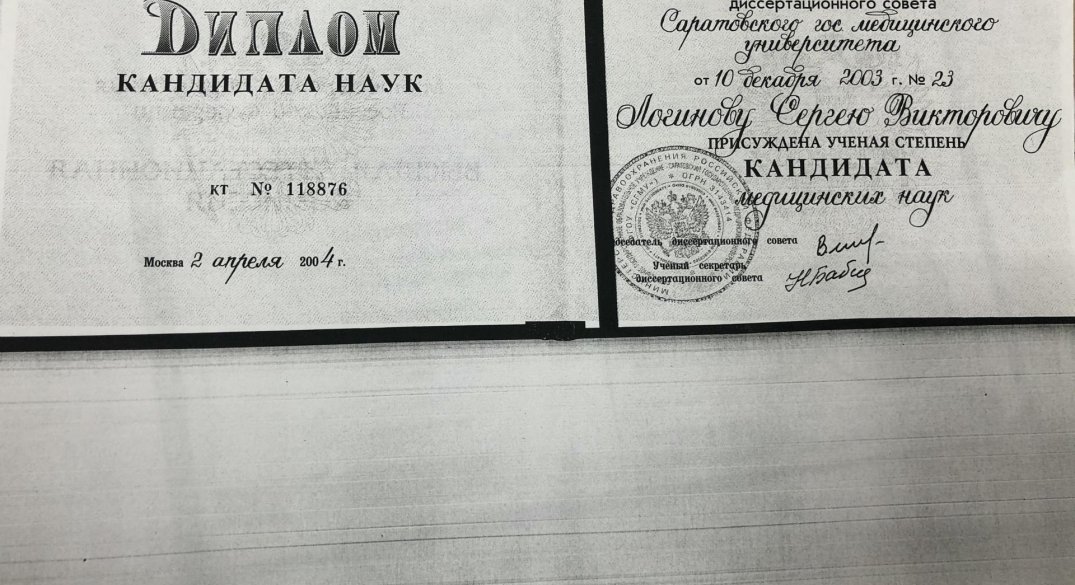 Диплом
КАНДИДАТА НАУК
КТ № 118876
Москва 2 апреля 2004 г.
диссертационного совета
Саратовского гос. медицинского
университета
от 10 декабря 2003 г. № 23
Логинову Сергею Викторовичу
ПРИСУЖДЕНА УЧЕНАЯ СТЕПЕНЬ
КАНДИДАТА
медицинских наук
председатель диссертационного совета
Ученый секретарь
диссертационного совета